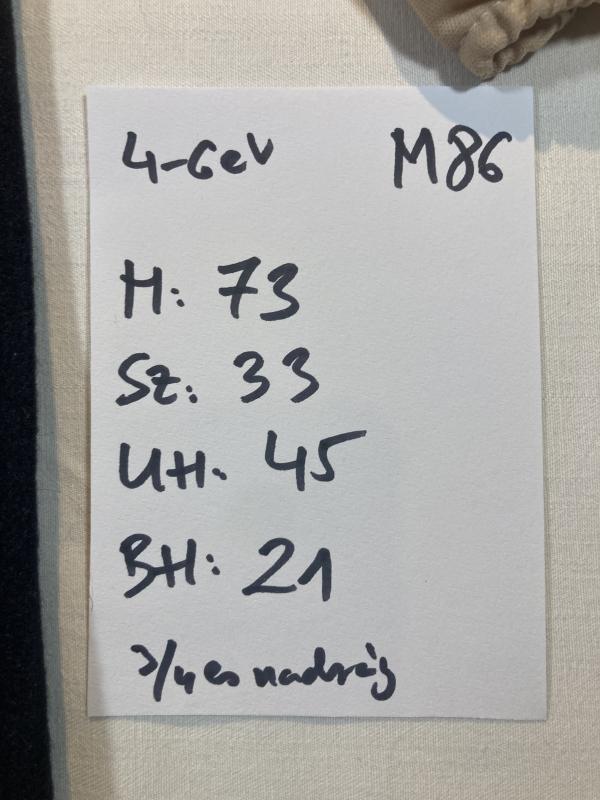 4-6 év M86
H: 73
Sz: 33
UH: 45
BH: 21
3/4 es nadrág